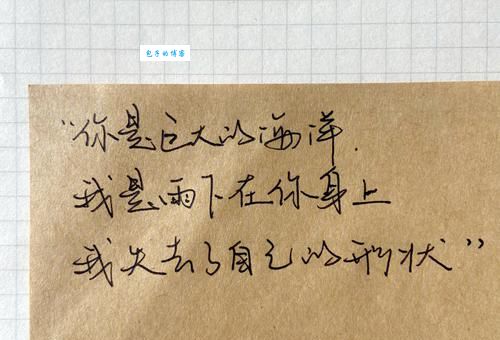 包子的博客
“你是巨大的海洋.
我是雨下在你身上
我失去了自己的形状”